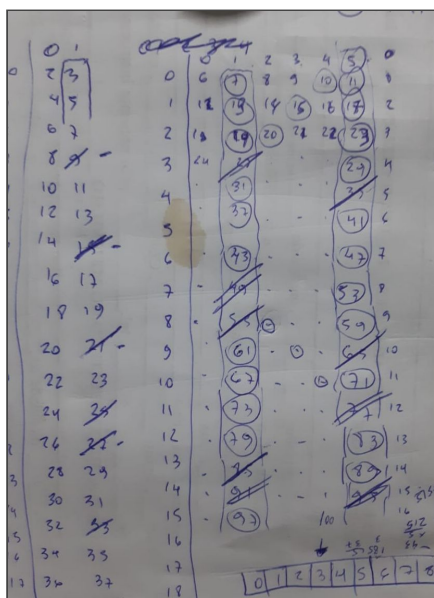 0 1
2 3
4 5
6 7
8 9 -
10 11
12 13
14 15 -
16 17
18 19
20 21 -
22 23
24 25
26 27 -
28 29
30 31
32 33
34 35
36 37
0 1 2 3 4 5
0 6 7 8 9 10 11
1 12 13 14 15 16 17 2
2 18 19 20 21 22 23 3
3 24 25 . . . 27 4
4 . 31 . . . 35 5
5 . 37 . . . 41 6
6 . 43 . . . 47 7
7 . 49 . . . 53 8
8 . 55 . . 59 9
9 . 61 . . 65 10
10 . 67 . . 71 11
11 . 73 . . . 77 12
12 . 79 . - - 83 13
13 . 85 . . . 89 14
14 . 91 . . . 95 15
15 . 97 100 16
16
17
18
0 1 2 3 4 5 6 7 8